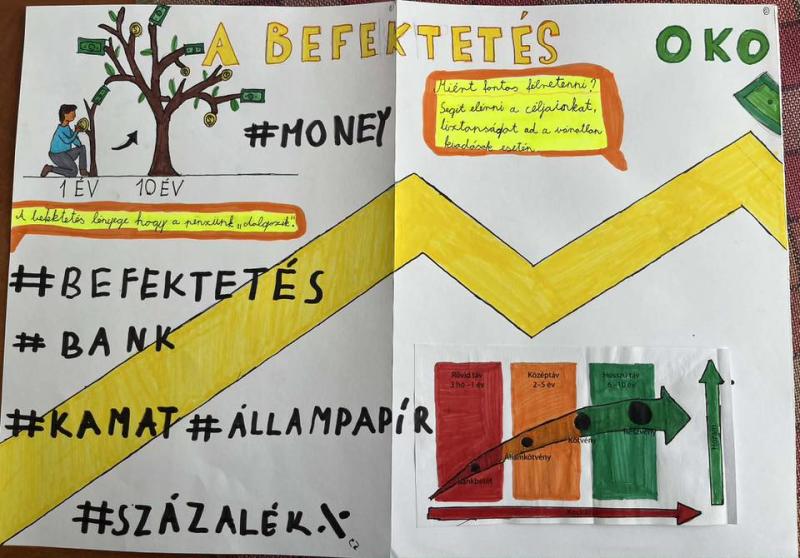 A BEFEKTETÉS OKO
#MONEY
1 ÉV 10 ÉV
A befektetés lényege hogy a pénzünk „dolgozik".
Miért fontos félretenni?
Segít elérni a céljainkat,
biztonságot ad a váratlan
kiadások esetén.
#BEFEKTETÉS
#BANK
#KAMAT #ÁLLAMPAPÍR
#SZÁZALÉK%
Rövid táv
3 hó -1 év
Középtáv
2-5 év
Hosszú táv
6-10 év
Bankbetét
Államkötvény
Kötvény
Részvény
Kockázat
Hozam